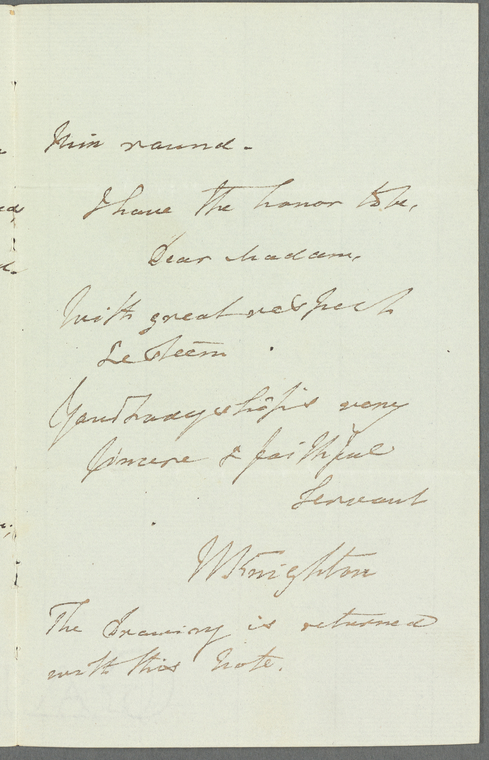 him round.
I have the honor to be,
Dear Madam,
With great respect
& esteem
Your Ladyship's very
sincere & faithful
Servant
WKnighton
The Drawing is returned
with this note.